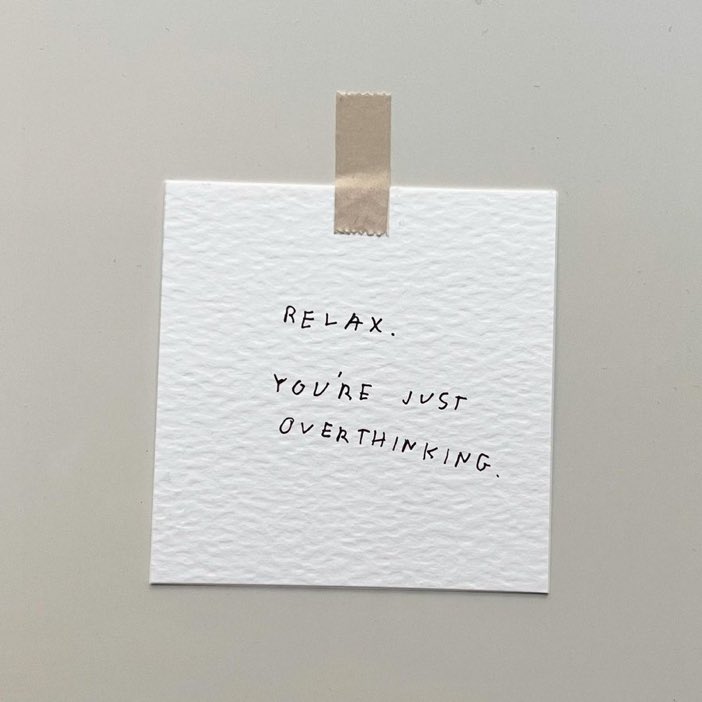 RELAX.
YOU'RE JUST
OVERTHINKING.